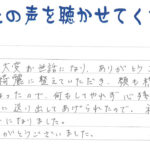 の声を聴かせてく
大変お世話になり、ありがとう
綺麗に整えていただき、顔も
ったので、何もしてやれず心残
に送り出してあげられたので、
になりました。
がとうございました。